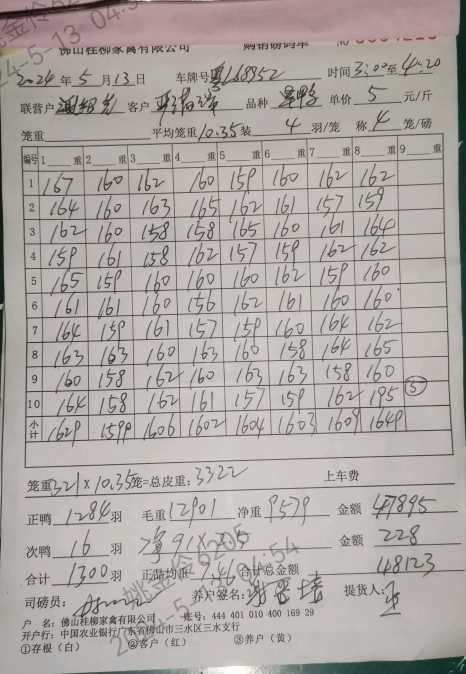 佛山桂柳家禽有限公司 购销磅码单
2024年5月13日 车牌号 粤 时间3:00至4:20
联营户 客户 品种 单价5元/斤
笼重 平均笼重10.35装4羽/笼 称4笼/磅
编号 1重 2重 3重 4重 5重 6重 7重 8重 9重
1 167 160 162 160 159 160 162 162
2 164 160 163 165 162 161 157 159
3 162 160 158 158 165 160 161 164
4 159 161 158 162 157 159 162 162
5 165 159 160 160 160 162 159 160
6 161 161 160 156 162 161 160 160
7 164 159 161 157 159 160 164 162
8 163 163 160 163 160 158 164 165
9 160 158 162 160 163 163 158 160
10 164 158 162 161 157 159 162 195 ⑤
小计 1629 1599 1606 1602 1604 1603 1609 1649
笼重321×10.35笼=总皮重:3322 上车费
正鸭1284羽 毛重12901 净重9579 金额47895
次鸭16羽 净91 金额228
合计1300羽 正品均重 合计总金额48123
司磅员: 养户签名: 提货人:
户 名:佛山桂柳家禽有限公司 账号:444 401 010 400 169 29
开户行:中国农业银行广东省佛山市三水区三水支行
①存根(白) ②客户(红) ③养户(黄)